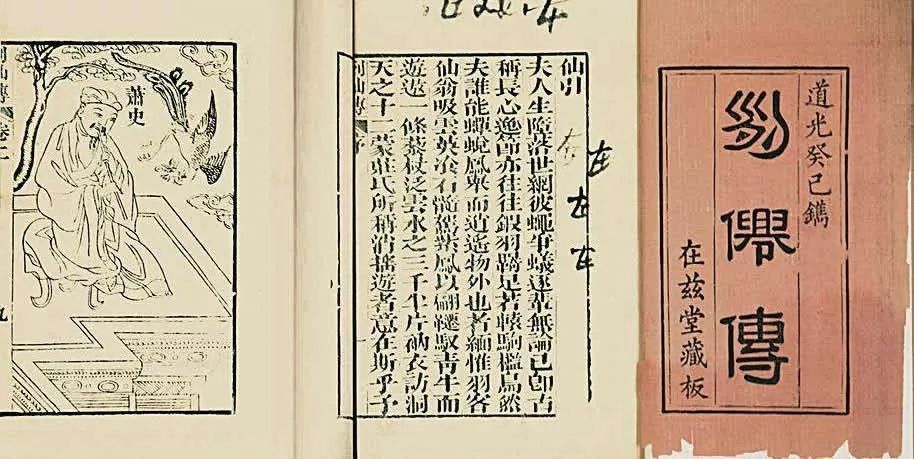 道光癸巳鐫
列僊傳
在茲堂藏板
仙引
夫人生墮落世網彼蠅爭蟻逐輩無論已卽古
稱長心逸節亦往往鎩羽羇足若轅駒檻鳥然
夫誰能蟬蛻鳳舉而逍遙物外也者緬惟羽客
仙翁吸雲英飡石髓駕紫鳳以翩韆馭青牛而
遊遨一條藜杖泛雲水之三千半片衲衣訪洞
天之十二蒙莊氏所稱消搖遊者意在斯乎予
列仙傳 序
左
左
左
蕭史
列仙傳 卷
九